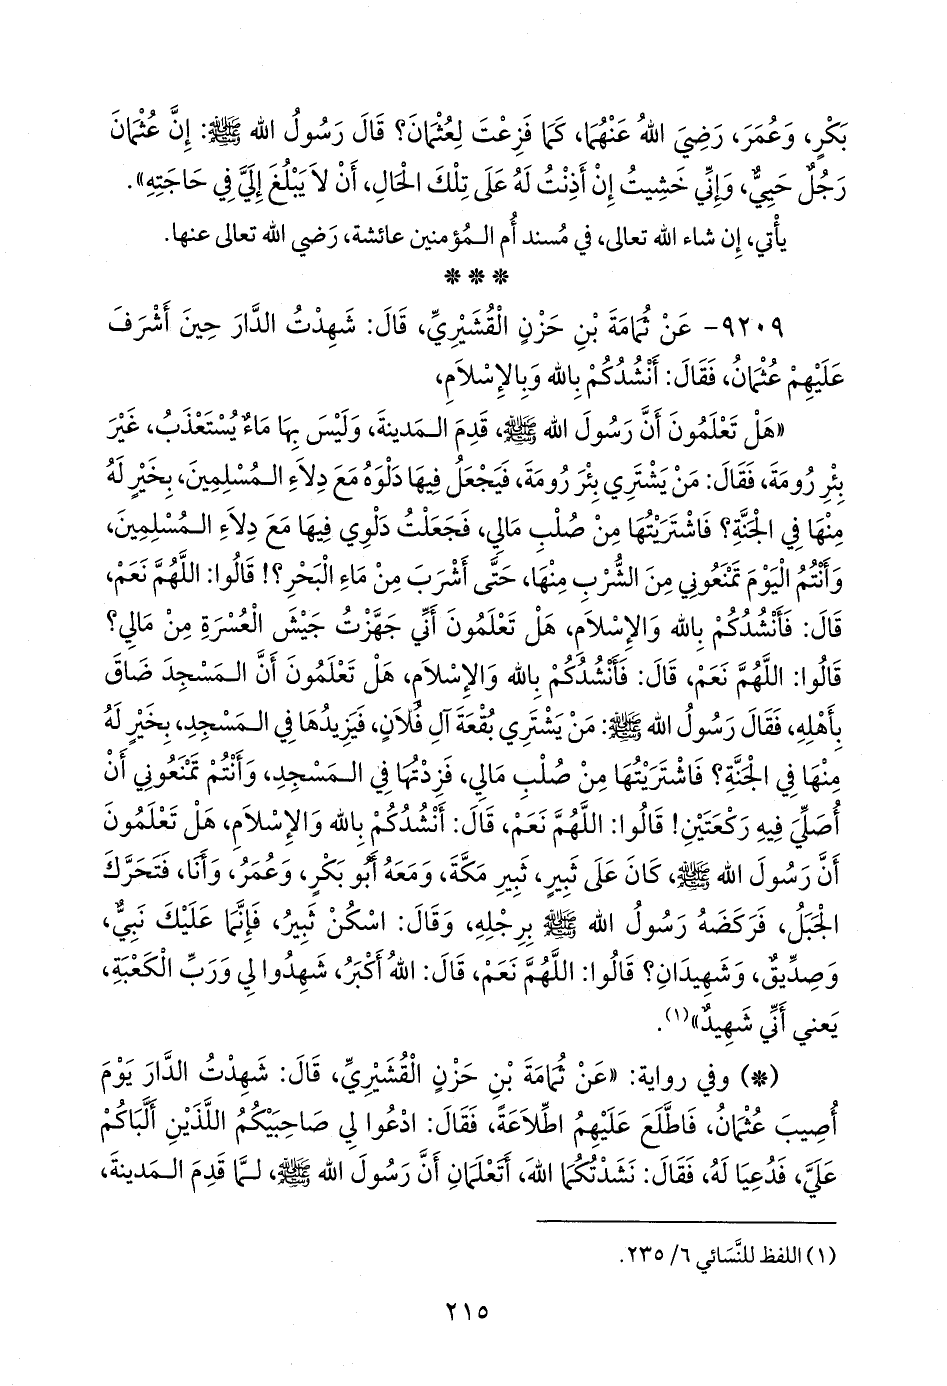 بَكْرٍ، وَعُمَرَ، رَضِيَ اللهُ عَنْهُمَا، كَمَا فَزِعْتَ لِعُثْمَانَ؟ قَالَ رَسُولُ الله ﷺ: إِنَّ عُثْمَانَ
رَجُلٌ حَيِيٌّ، وَإِنِّي خَشِيتُ إِنْ أَذِنْتُ لَهُ عَلَى تِلْكَ الْحَالِ، أَنْ لاَ يَبْلُغَ إِلَيَّ فِي حَاجَتِهِ».
يأْتي، إِن شاء الله تعالى، في مُسند أُم المُؤمنين عائشة، رَضي الله تعالى عنها.
***
٩٢٠٩- عَنْ ثُمَامَةَ بْنِ حَزْنٍ الْقُشَيْرِيِّ، قَالَ: شَهِدْتُ الدَّارَ حِينَ أَشْرَفَ
عَلَيْهِمْ عُثْمَانُ، فَقَالَ: أَنْشُدُكُمْ بِالله وَبِالإِسْلاَمِ،
«هَلْ تَعْلَمُونَ أَنَّ رَسُولَ الله ﷺ، قَدِمَ المَدينةَ، وَلَيْسَ بِهَا مَاءٌ يُسْتَعْذَبُ، غَيْرَ
بِئْرِ رُومَةَ، فَقَالَ: مَنْ يَشْتَرِي بِئْرَ رُومَةَ، فَيَجْعَلُ فِيهَا دَلْوَهُ مَعَ دِلاَءِ المُسْلِمِينَ، بِخَيْرٍ لَهُ
مِنْهَا فِي الْجَنَّةِ؟ فَاشْتَرَيْتُهَا مِنْ صُلْبِ مَالِي، فَجَعَلْتُ دَلْوِي فِيهَا مَعَ دِلاَءِ المُسْلِمِينَ،
وَأَنْتُمُ الْيَوْمَ تَمْنَعُونِي مِنَ الشُّرْبِ مِنْهَا، حَتَّى أَشْرَبَ مِنْ مَاءِ الْبَحْرِ؟! قَالُوا: اللَّهُمَّ نَعَمْ،
قَالَ: فَأَنْشُدُكُمْ بِالله وَالإِسْلاَمِ، هَلْ تَعْلَمُونَ أَنِّي جَهَّزْتُ جَيْشَ الْعُسْرَةِ مِنْ مَالِي؟
قَالُوا: اللَّهُمَّ نَعَمْ، قَالَ: فَأَنْشُدُكُمْ بِالله وَالإِسْلاَمِ، هَلْ تَعْلَمُونَ أَنَّ المَسْجِدَ ضَاقَ
بِأَهْلِهِ، فَقَالَ رَسُولُ الله ﷺ: مَنْ يَشْتَرِي بُقْعَةَ آلِ فُلاَنٍ، فَيَزِيدُهَا فِي المَسْجِدِ، بِخَيْرٍ لَهُ
مِنْهَا فِي الْجَنَّةِ؟ فَاشْتَرَيْتُهَا مِنْ صُلْبِ مَالِي، فَزِدْتُهَا فِي المَسْجِدِ، وَأَنْتُمْ تَمْنَعُونِي أَنْ
أُصَلِّيَ فِيهِ رَكْعَتَيْنِ! قَالُوا: اللَّهُمَّ نَعَمْ، قَالَ: أَنْشُدُكُمْ بِالله وَالإِسْلاَمِ، هَلْ تَعْلَمُونَ
أَنَّ رَسُولَ الله ﷺ، كَانَ عَلَى ثَبِيرٍ، ثَبِيرِ مَكَّةَ، وَمَعَهُ أَبُو بَكْرٍ، وَعُمَرُ، وَأَنَا، فَتَحَرَّكَ
الْجَبَلُ، فَرَكَضَهُ رَسُولُ الله ﷺ بِرِجْلِهِ، وَقَالَ: اسْكُنْ ثَبِيرُ، فَإِنَّمَا عَلَيْكَ نَبِيٌّ،
وَصِدِّيقٌ، وَشَهِيدَانِ؟ قَالُوا: اللَّهُمَّ نَعَمْ، قَالَ: اللهُ أَكْبَرُ، شَهِدُوا لِي وَرَبِّ الْكَعْبَةِ،
يَعني أَنِّي شَهِيدٌ»(١).
(*) وفي رواية: «عَنْ ثُمَامَةَ بْنِ حَزْنٍ الْقُشَيْرِيِّ، قَالَ: شَهِدْتُ الدَّارَ يَوْمَ
أُصِيبَ عُثْمَانُ، فَاطَّلَعَ عَلَيْهِمُ اطِّلاَعَةً، فَقَالَ: ادْعُوا لِي صَاحِبَيْكُمُ اللَّذَيْنِ أَلَّبَاكُمْ
عَلَيَّ، فَدُعِيَا لَهُ، فَقَالَ: نَشَدْتُكُمَا اللهَ، أَتَعْلَمَانِ أَنَّ رَسُولَ الله ﷺ، لمَّا قَدِمَ المَدينةَ،
(١) اللفظ للنَّسَائي ٦/ ٢٣٥.
٢١٥